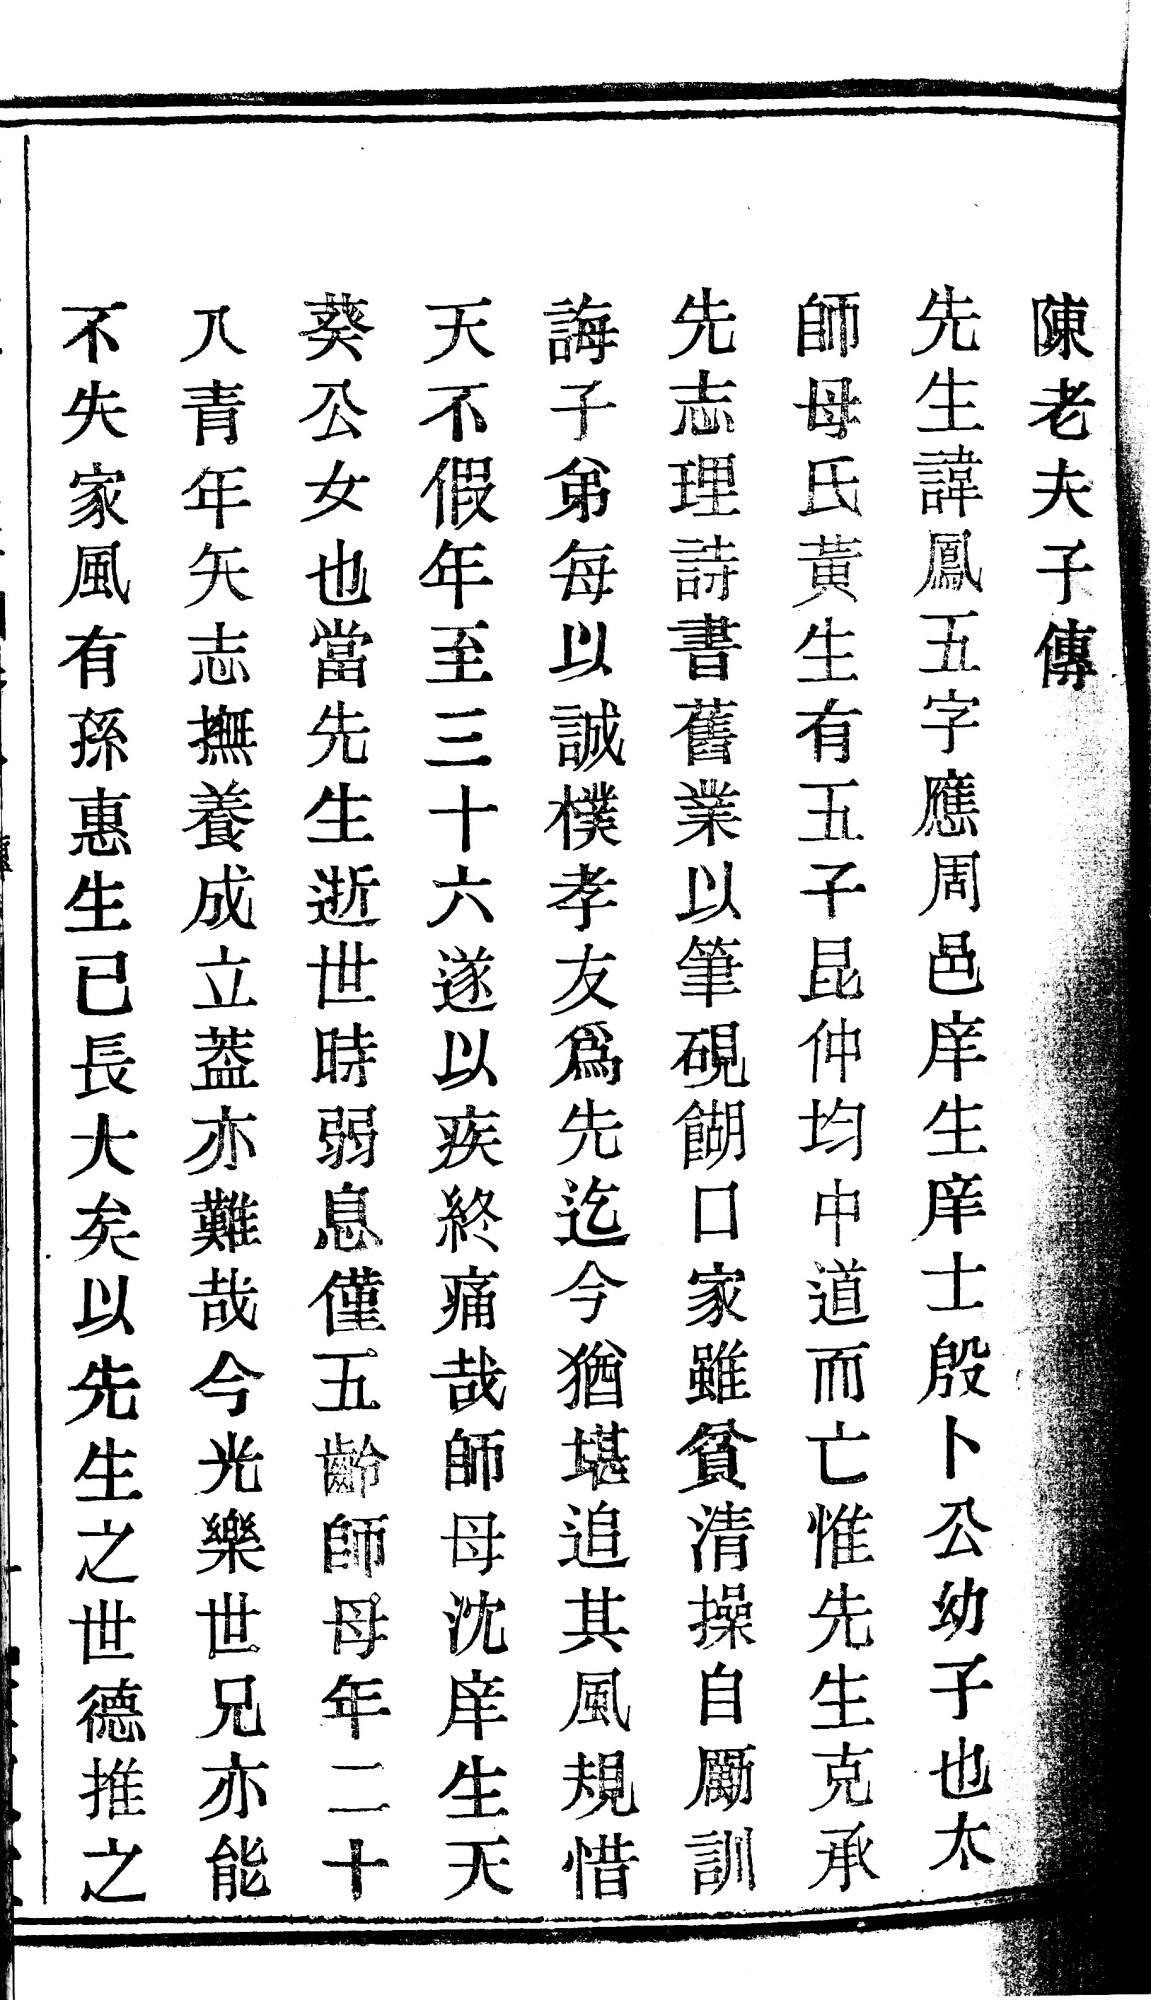 陳老夫子傳
先生諱鳳五字應周邑庠生庠士殷卜公幼子也太
師母氏黃生有五子昆仲均中道而亡惟先生克承
先志理詩書舊業以筆硯餬口家雖貧清操自勵訓
誨子弟每以誠樸孝友爲先迄今猶堪追其風規惜
天不假年至三十六遂以疾終痛哉師母沈庠生天
葵公女也當先生逝世時弱息僅五齡師母年二十
八青年矢志撫養成立蓋亦難哉今光樂世兄亦能
不失家風有孫惠生已長大矣以先生之世德推之